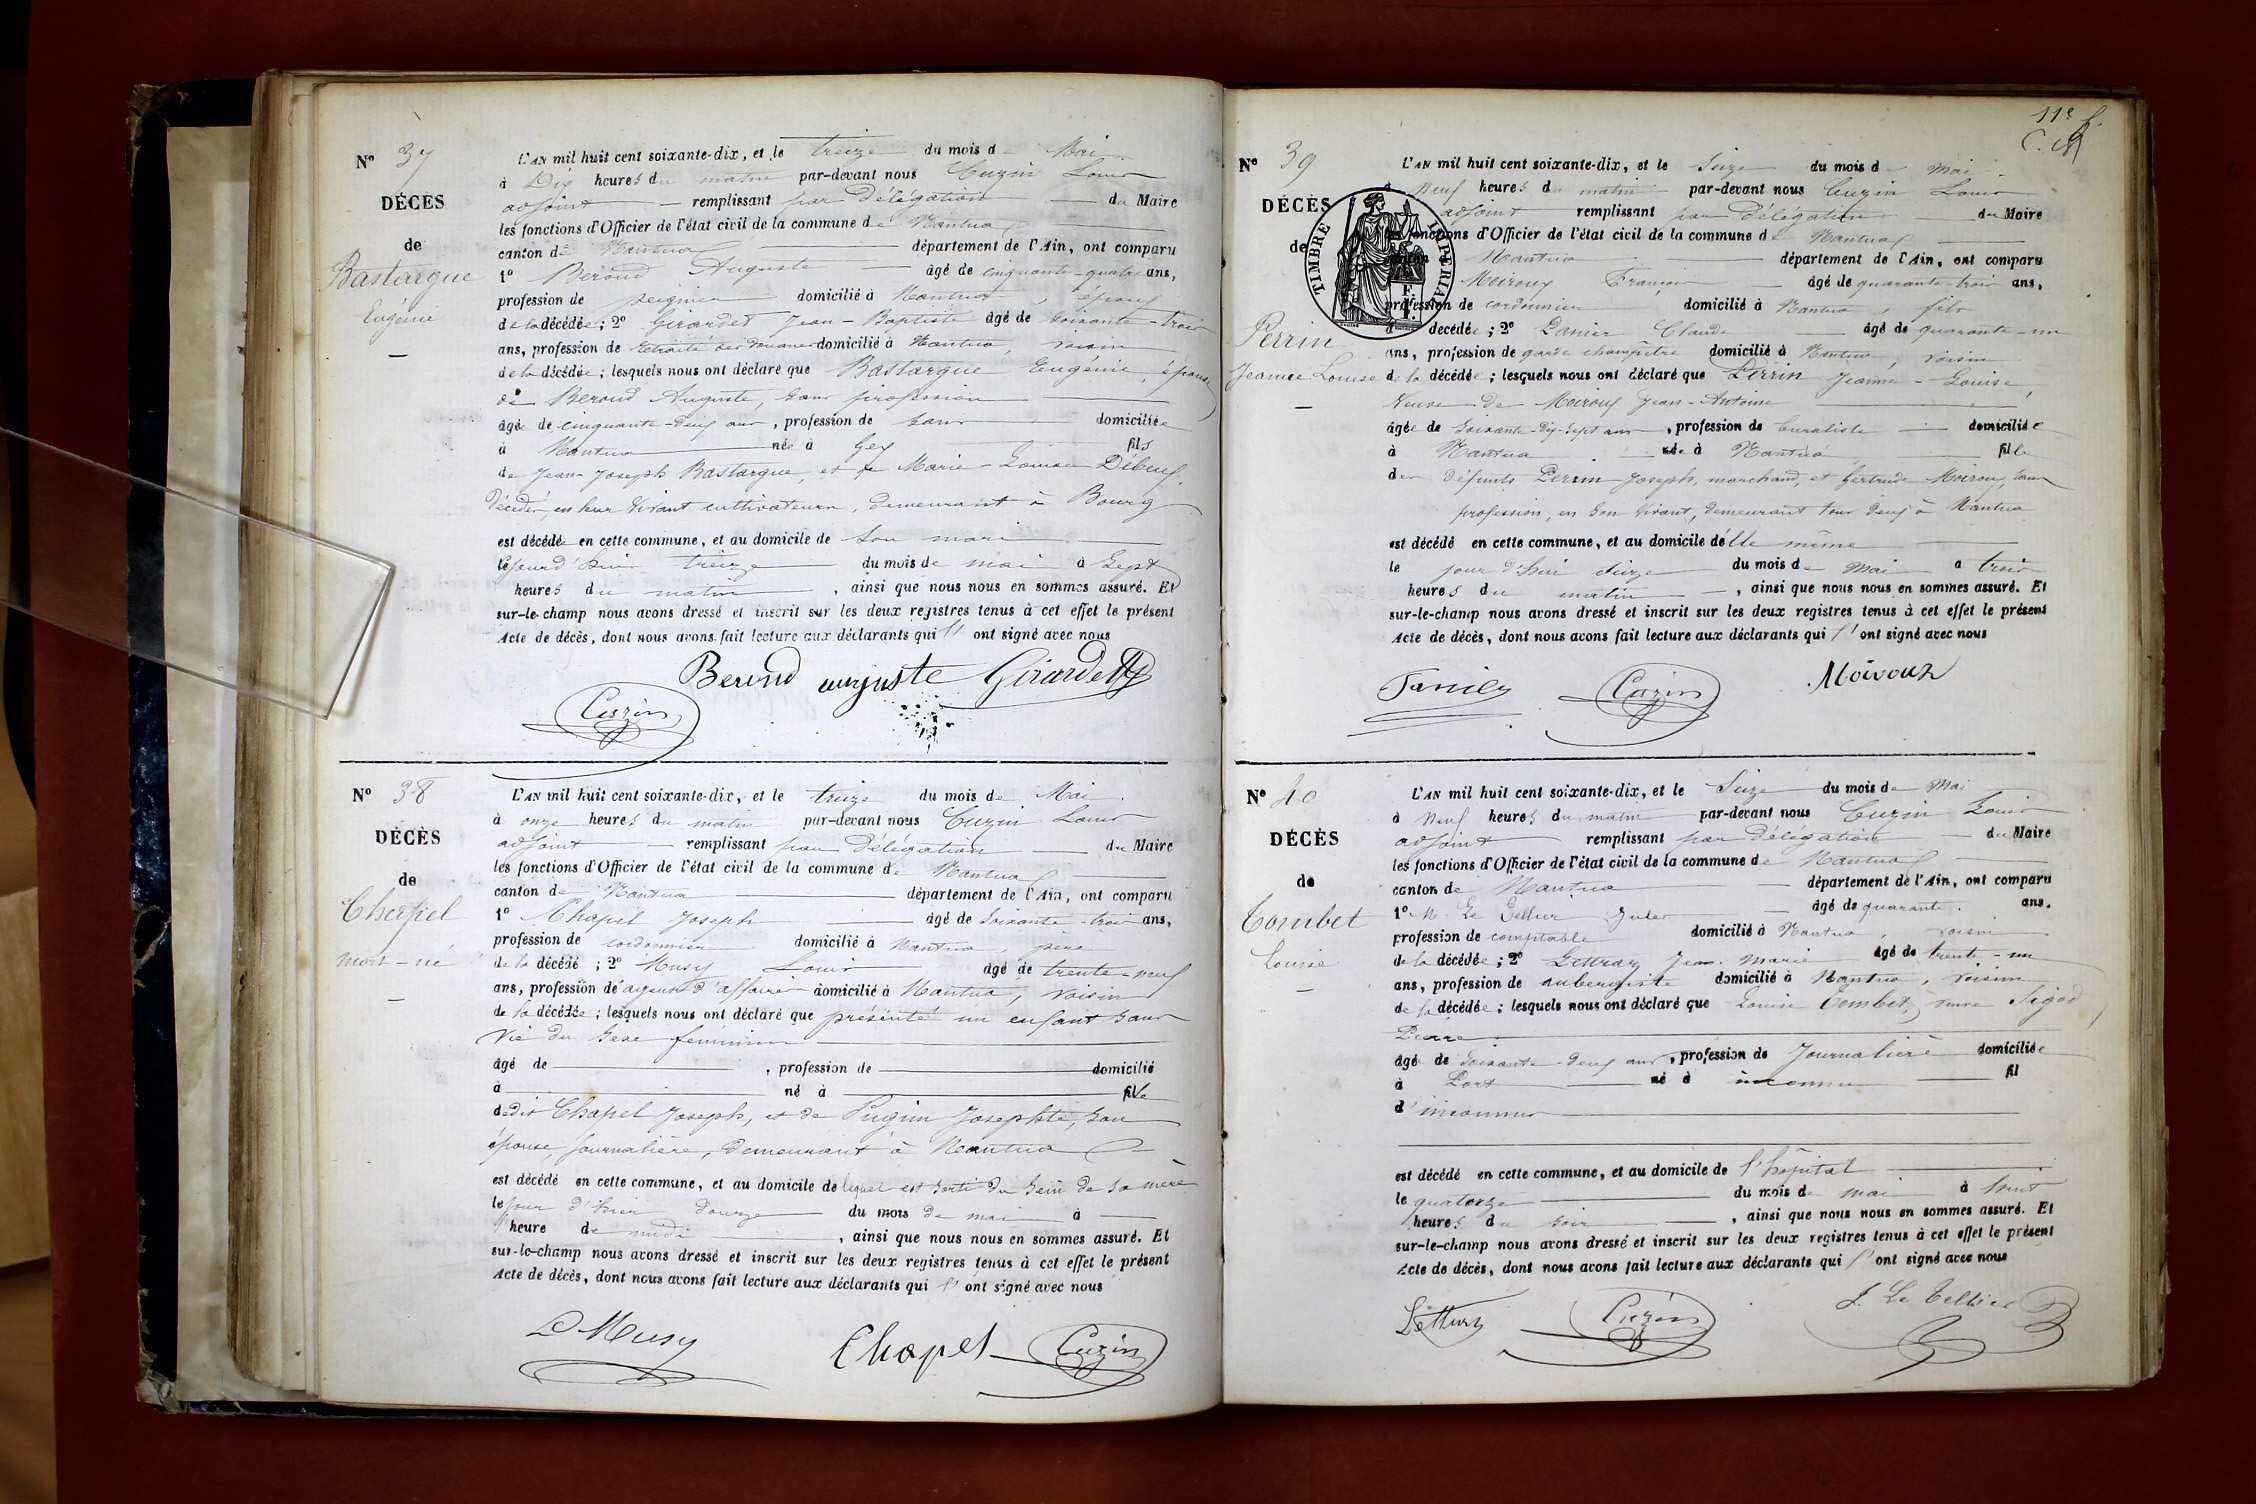 N° 37
DÉCÈS
de
Bastargue
Eugénie
L'AN mil huit cent soixante-dix, et le treize du mois de Mai
à Dix heures du matin par-devant nous Cuzin Louis
adjoint remplissant par Délégation du Maire
les fonctions d'Officier de l'état civil de la commune de Nantua
canton de Nantua département de l'Ain, ont comparu
1° Béroud Auguste âgé de cinquante-quatre ans,
profession de peignier domicilié à Nantua, époux
de la décédée; 2° Girardet Jean-Baptiste âgé de soixante-trois
ans, profession de retraité des Douanes domicilié à Nantua, voisin
de la décédée; lesquels nous ont déclaré que Bastargue Eugénie, épouse
de Beroud Auguste, sans profession
âgée de cinquante-deux ans, profession de sans domiciliée
à Nantua née à Gex fille
de Jean-Joseph Bastargue, et de Marie-Louise Débeuf,
Décédés, en leur vivant cultivateurs, demeurant à Bourg
est décédée en cette commune, et au domicile de son mari
le jour d'hui treize du mois de mai à Sept
heures du matin, ainsi que nous nous en sommes assuré. Et
sur-le-champ nous avons dressé et inscrit sur les deux registres tenus à cet effet le présent
Acte de décès, dont nous avons fait lecture aux déclarants qui l' ont signé avec nous
Beroud auguste Girardet
Cuzin
N° 38
DÉCÈS
de
Chapel
mort-né
L'AN mil huit cent soixante-dix, et le treize du mois de Mai
à onze heures du matin par-devant nous Cuzin Louis
adjoint remplissant par Délégation du Maire
les fonctions d'Officier de l'état civil de la commune de Nantua
canton de Nantua département de l'Ain, ont comparu
1° Chapel Joseph âgé de soixante-trois ans,
profession de cordonnier domicilié à Nantua père
de la décédé; 2° Musy Louis âgé de trente-neuf
ans, profession de agent d'affaires domicilié à Nantua, voisin
de la décédée; lesquels nous ont déclaré que présenté un enfant sans
vie du sexe féminin
âgé de , profession de domicilié
à né à fille
dedit Chapel Joseph, et de Pugin Josephte, son
épouse, journalière, demeurant à Nantua
est décédé en cette commune, et au domicile de lequel est sorti du sein de sa mère
le jour d'hier Douze du mois de mai à
heure de midi, ainsi que nous nous en sommes assuré. Et
sur-le-champ nous avons dressé et inscrit sur les deux registres tenus à cet effet le présent
Acte de décès, dont nous avons fait lecture aux déclarants qui l' ont signé avec nous
L Musy Chapel Cuzin
11e f.
N° 39
DÉCÈS
de
Perrin
Jeanne Louise
TIMBRE IMPERIAL
L'AN mil huit cent soixante-dix, et le seize du mois de mai
à neuf heures du matin par-devant nous Cuzin Louis
adjoint remplissant par Délégation du Maire
les fonctions d'Officier de l'état civil de la commune de Nantua
canton de Nantua département de l'Ain, ont comparu
Moiroux François âgé de quarante-trois ans,
profession de cordonnier domicilié à Nantua, fils
décédée; 2° Tanier Claude âgé de quarante-un
ans, profession de garde champêtre domicilié à Nantua, voisin
de la décédée; lesquels nous ont déclaré que Perrin Jeanne-Louise,
Veuve de Moiroux Jean-Antoine
âgée de soixante-dix-sept ans, profession de buraliste domiciliée
à Nantua née à Nantua fille
des défunts Perrin Joseph, marchand, et Gertrude Moiroux, sans
profession, en son vivant, demeurant tous deux à Nantua
est décédé en cette commune, et au domicile d'elle même
le jour d'hui seize du mois de mai à trois
heures du matin, ainsi que nous nous en sommes assuré. Et
sur-le-champ nous avons dressé et inscrit sur les deux registres tenus à cet effet le présent
Acte de décès, dont nous avons fait lecture aux déclarants qui l' ont signé avec nous
Tanier Cuzin Moiroux
N° 40
DÉCÈS
de
Combet
Louise
L'AN mil huit cent soixante-dix, et le Seize du mois de Mai
à neuf heures du matin par-devant nous Cuzin Louis
adjoint remplissant par Délégation du Maire
les fonctions d'Officier de l'état civil de la commune de Nantua
canton de Nantua département de l'Ain, ont comparu
1° M. Le Tellier Jules âgé de quarante ans,
profession de comptable domicilié à Nantua, voisin
de la décédée; 2° Jean-Marie âgé de trente-un
ans, profession de aubergiste domicilié à Nantua, voisin
de la décédée; lesquels nous ont déclaré que Louise Combet, veuve Sigod
Pierre
âgé de soixante-deux ans, profession de Journalière domiciliée
à Port né à inconnu fil
d'inconnus
est décédé en cette commune, et au domicile de l'hôpital
le quatorze du mois de mai à huit
heures du soir, ainsi que nous nous en sommes assuré. Et
sur-le-champ nous avons dressé et inscrit sur les deux registres tenus à cet effet le présent
Acte de décès, dont nous avons fait lecture aux déclarants qui l' ont signé avec nous
Cuzin J. Le Tellier